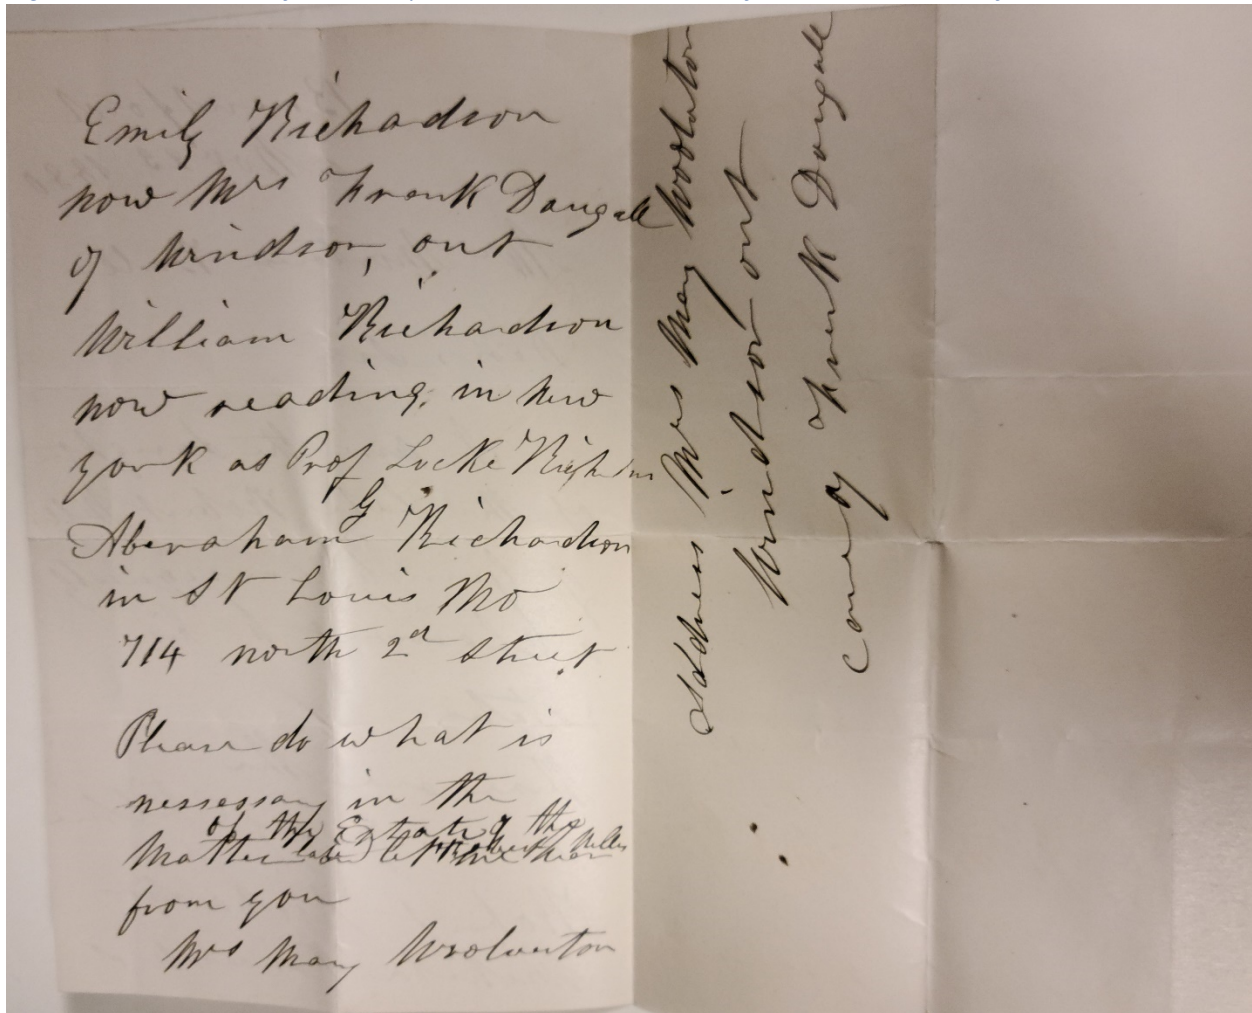 Emily Richardson
now Mrs Frank Dougall
of Windsor, ont
William Richardson
now reading, in New
york as Prof Locke Richardson
Aberaham G Richardson
in St Louis Mo
714 north 2d Street
Please do what is
nessessary in the
of the Estate of the
Matter let me hear
from you
Mrs Mary Woolverton
Address Mrs Mary Woolverton
Windsor ont
care of Frank Dougall